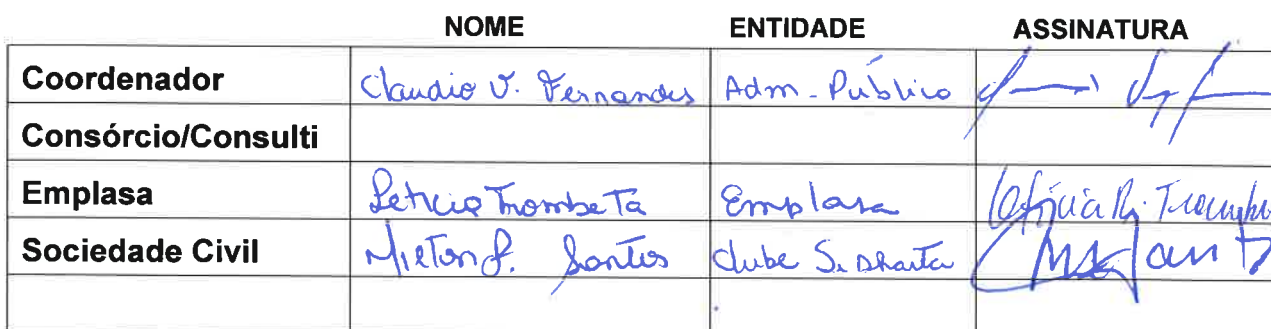 NOME ENTIDADE ASSINATURA
Coordenador Claudio V. Fernandes Adm - Público
Consórcio/Consulti
Emplasa Letícia Trombeta Emplasa Letícia R. Trombe
Sociedade Civil Milton S. Santos clube